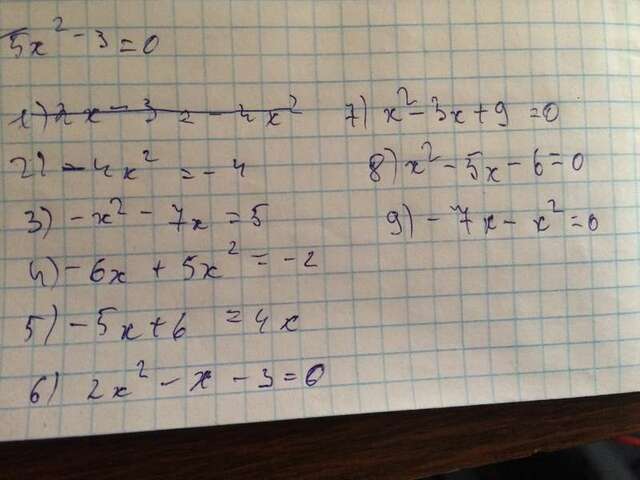 5x² - 3 = 0
1) 2x - 3 = -4x²
2) -4x² = -4
3) -x² - 7x = 5
4) -6x + 5x² = -2
5) -5x + 6 = 4x
6) 2x² - x - 3 = 0
7) x² - 3x + 9 = 0
8) x² - 5x - 6 = 0
9) -7x - x² = 0